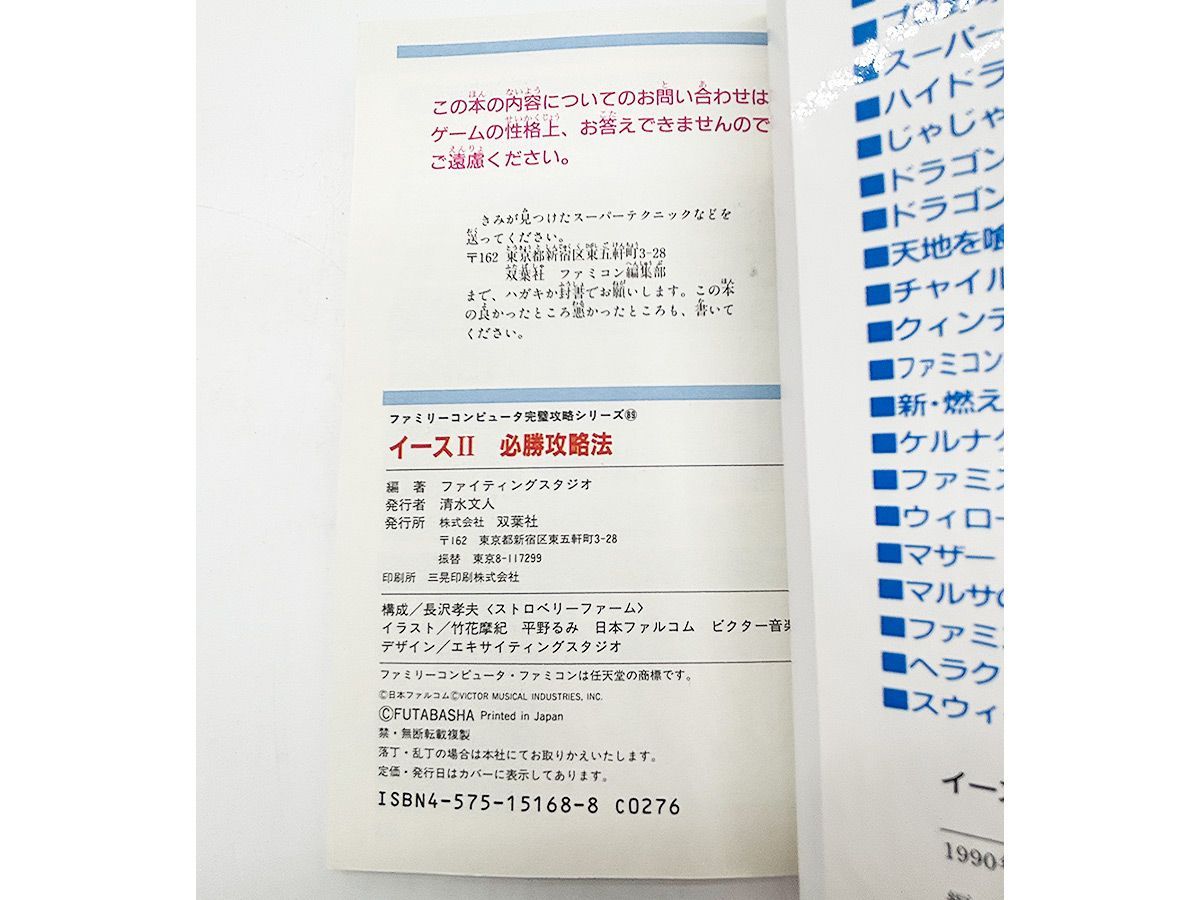 この本の内容についてのお問い合わせは
ゲームの性格上、お答えできませんので
ご遠慮ください。
きみが見つけたスーパーテクニックなどを
送ってください。
〒162 東京都新宿区東五軒町3-28
双葉社 ファミコン編集部
まで、ハガキか封書でお願いします。この本
の良かったところ悪かったところも、書いて
ください。
ファミリーコンピュータ完璧攻略シリーズ
イースII 必勝攻略法
編 著 ファイティングスタジオ
発行者 清水文人
発行所 株式会社 双葉社
〒162 東京都新宿区東五軒町3-28
振替 東京8-117299
印刷所 三晃印刷株式会社
構成/長沢孝夫〈ストロベリーファーム〉
イラスト/竹花摩紀 平野るみ 日本ファルコム ビクター音楽
デザイン/エキサイティングスタジオ
ファミリーコンピュータ・ファミコンは任天堂の商標です。
©日本ファルコム©VICTOR MUSICAL INDUSTRIES, INC.
©FUTABASHA Printed in Japan
禁・無断転載複製
落丁・乱丁の場合は本社にてお取りかえいたします。
定価・発行日はカバーに表示してあります。
ISBN4-575-15168-8 C0276
■スーパー
■ハイドラ
■じゃじゃ
■ドラゴン
■ドラゴン
■天地を喰
■チャイル
■クィンテ
■ファミコン
■新・燃え
■ケルナグ
■ファミス
■ウィロー
■マザー
■マルサの
■ファミコ
■ヘラク
■スウィ
イース
1990年